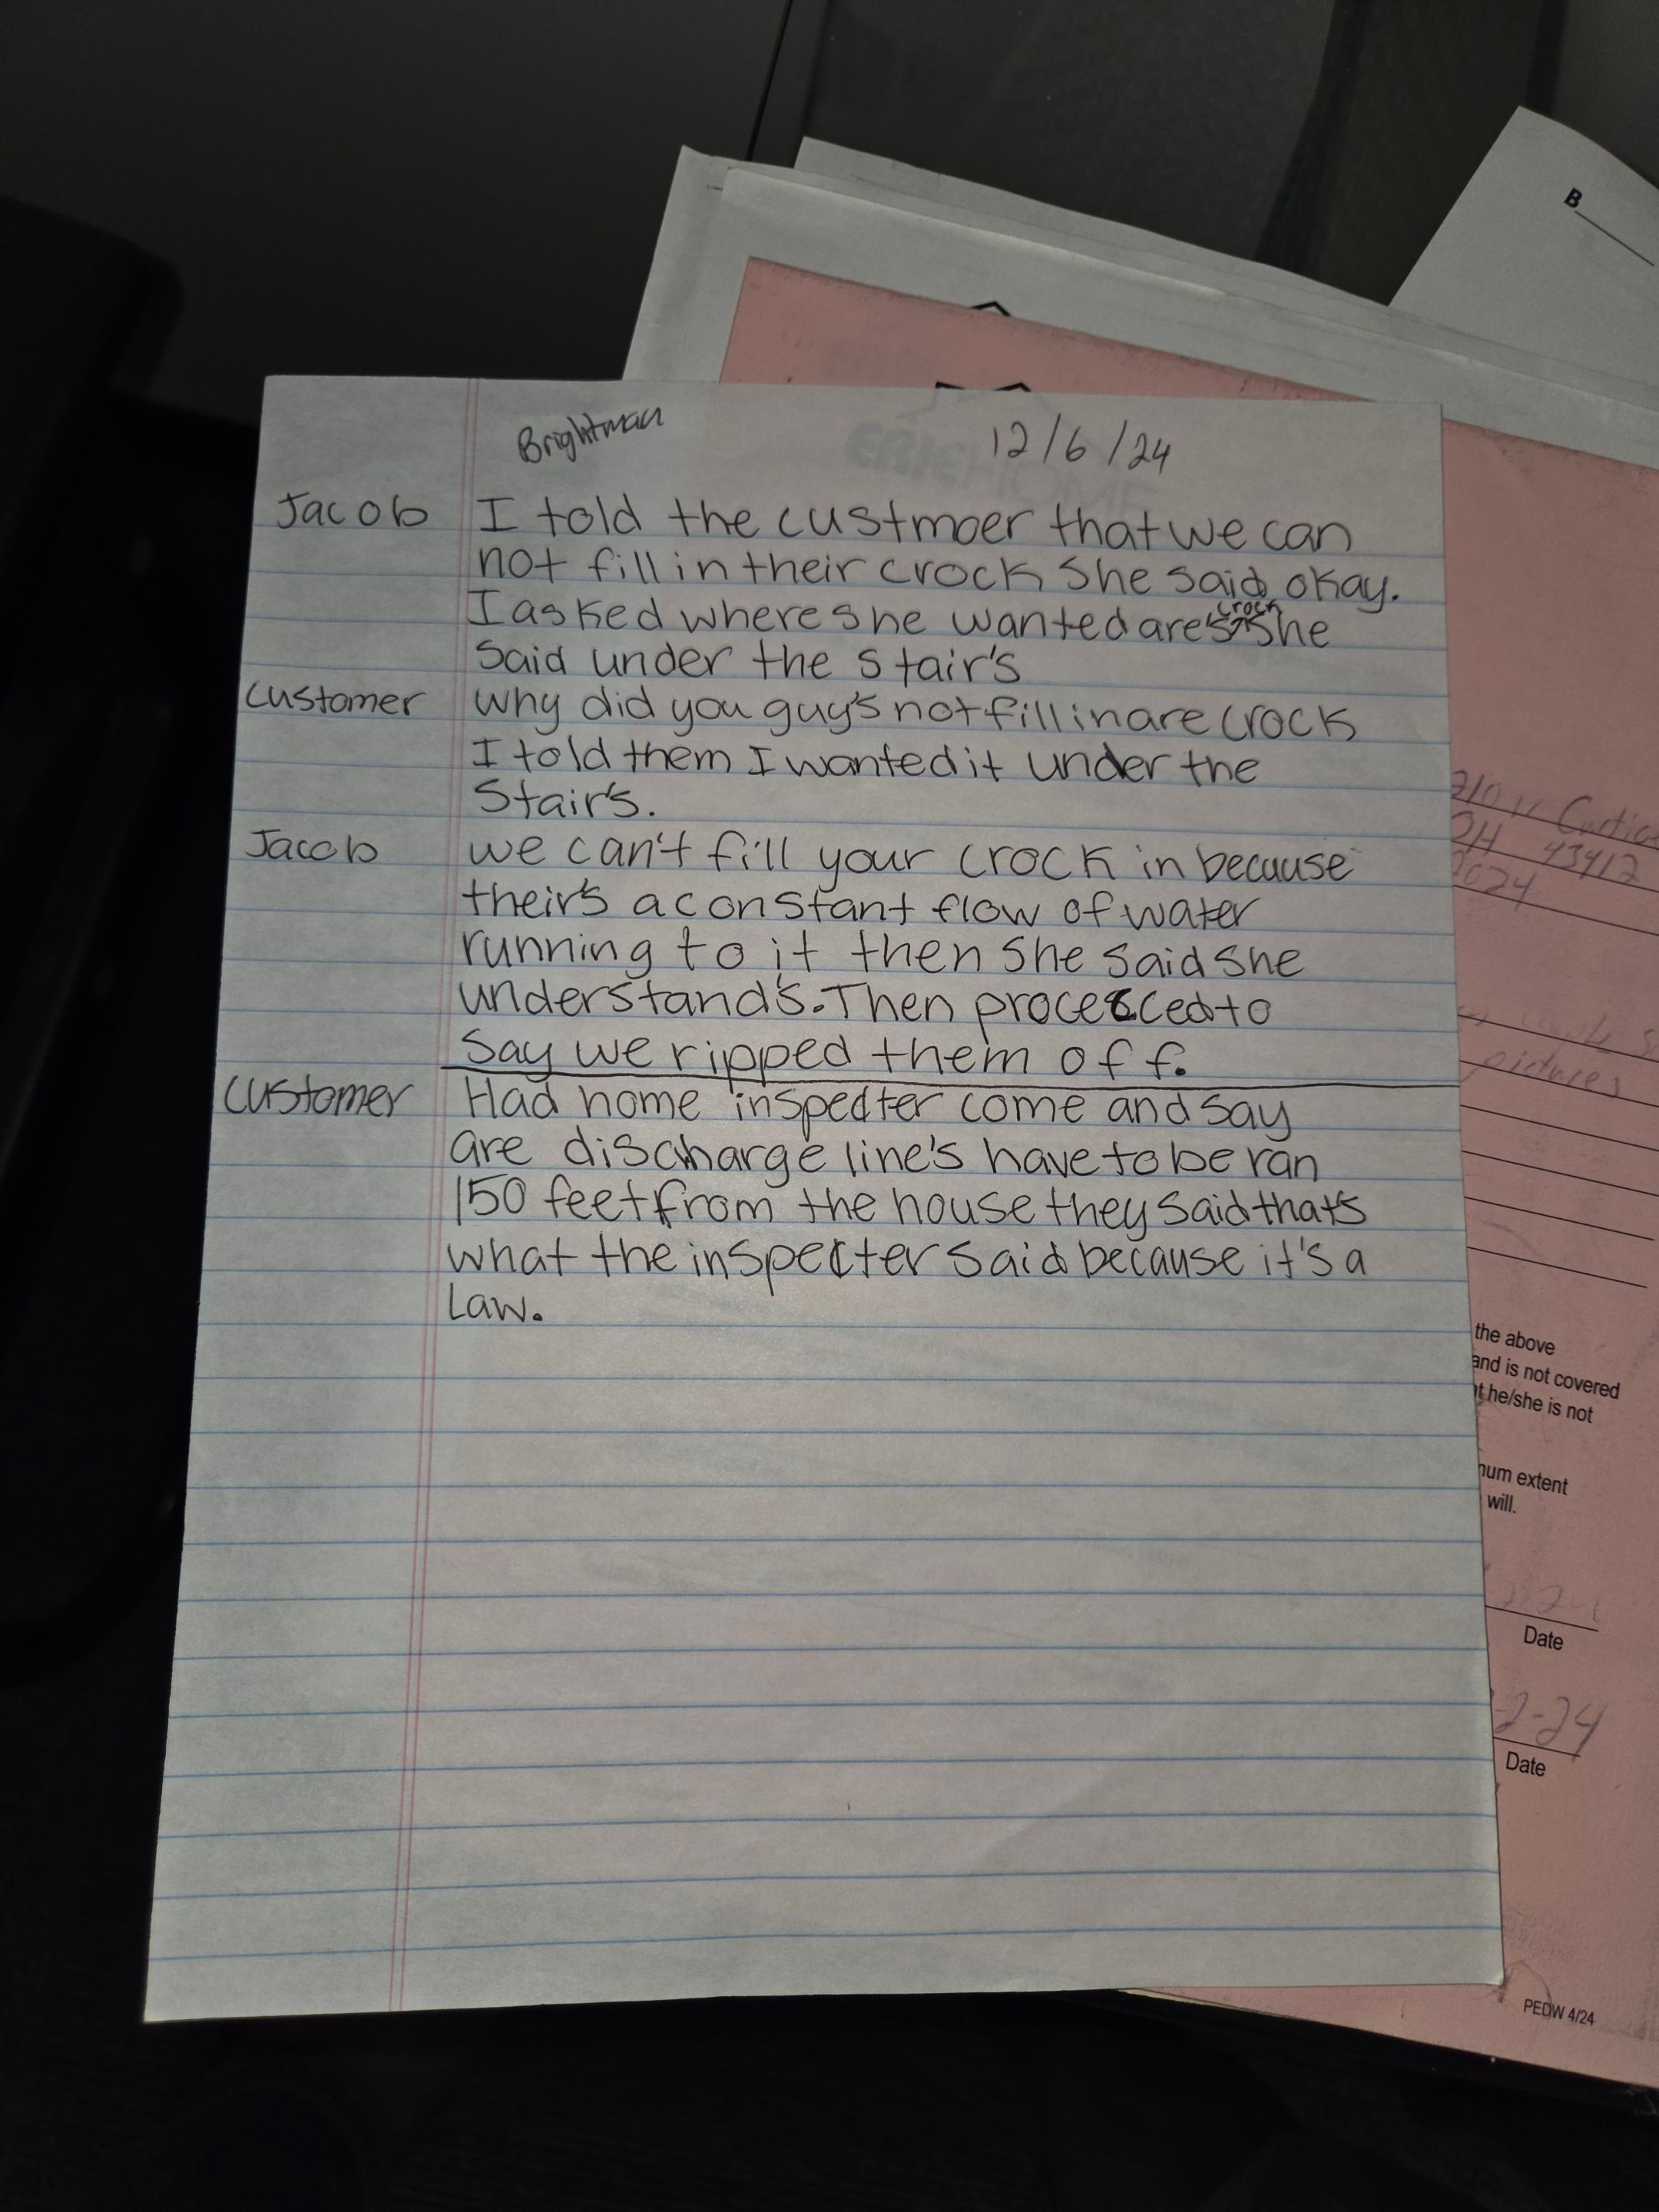 B
Brightman 12/6/24
Jacob I told the custmoer that we can
not fill in their crock she said okay.
I asked where she wanted are's crock she
said under the stair's
customer why did you guy's not fill in are crock
I told them I wanted it under the
stair's.
Jacob we can't fill your crock in because
their's a constant flow of water
running to it then she said she
understand's. Then procecced to
say we ripped them off.
customer Had home inspecter come and say
are discharge line's have to be ran
150 feet from the house they said that's
what the inspecter said because it's a
Law.
OH 43412
2024
pictures
the above
and is not covered
he/she is not
extent
will.
Date
-2-24
Date
PEDW 4/24